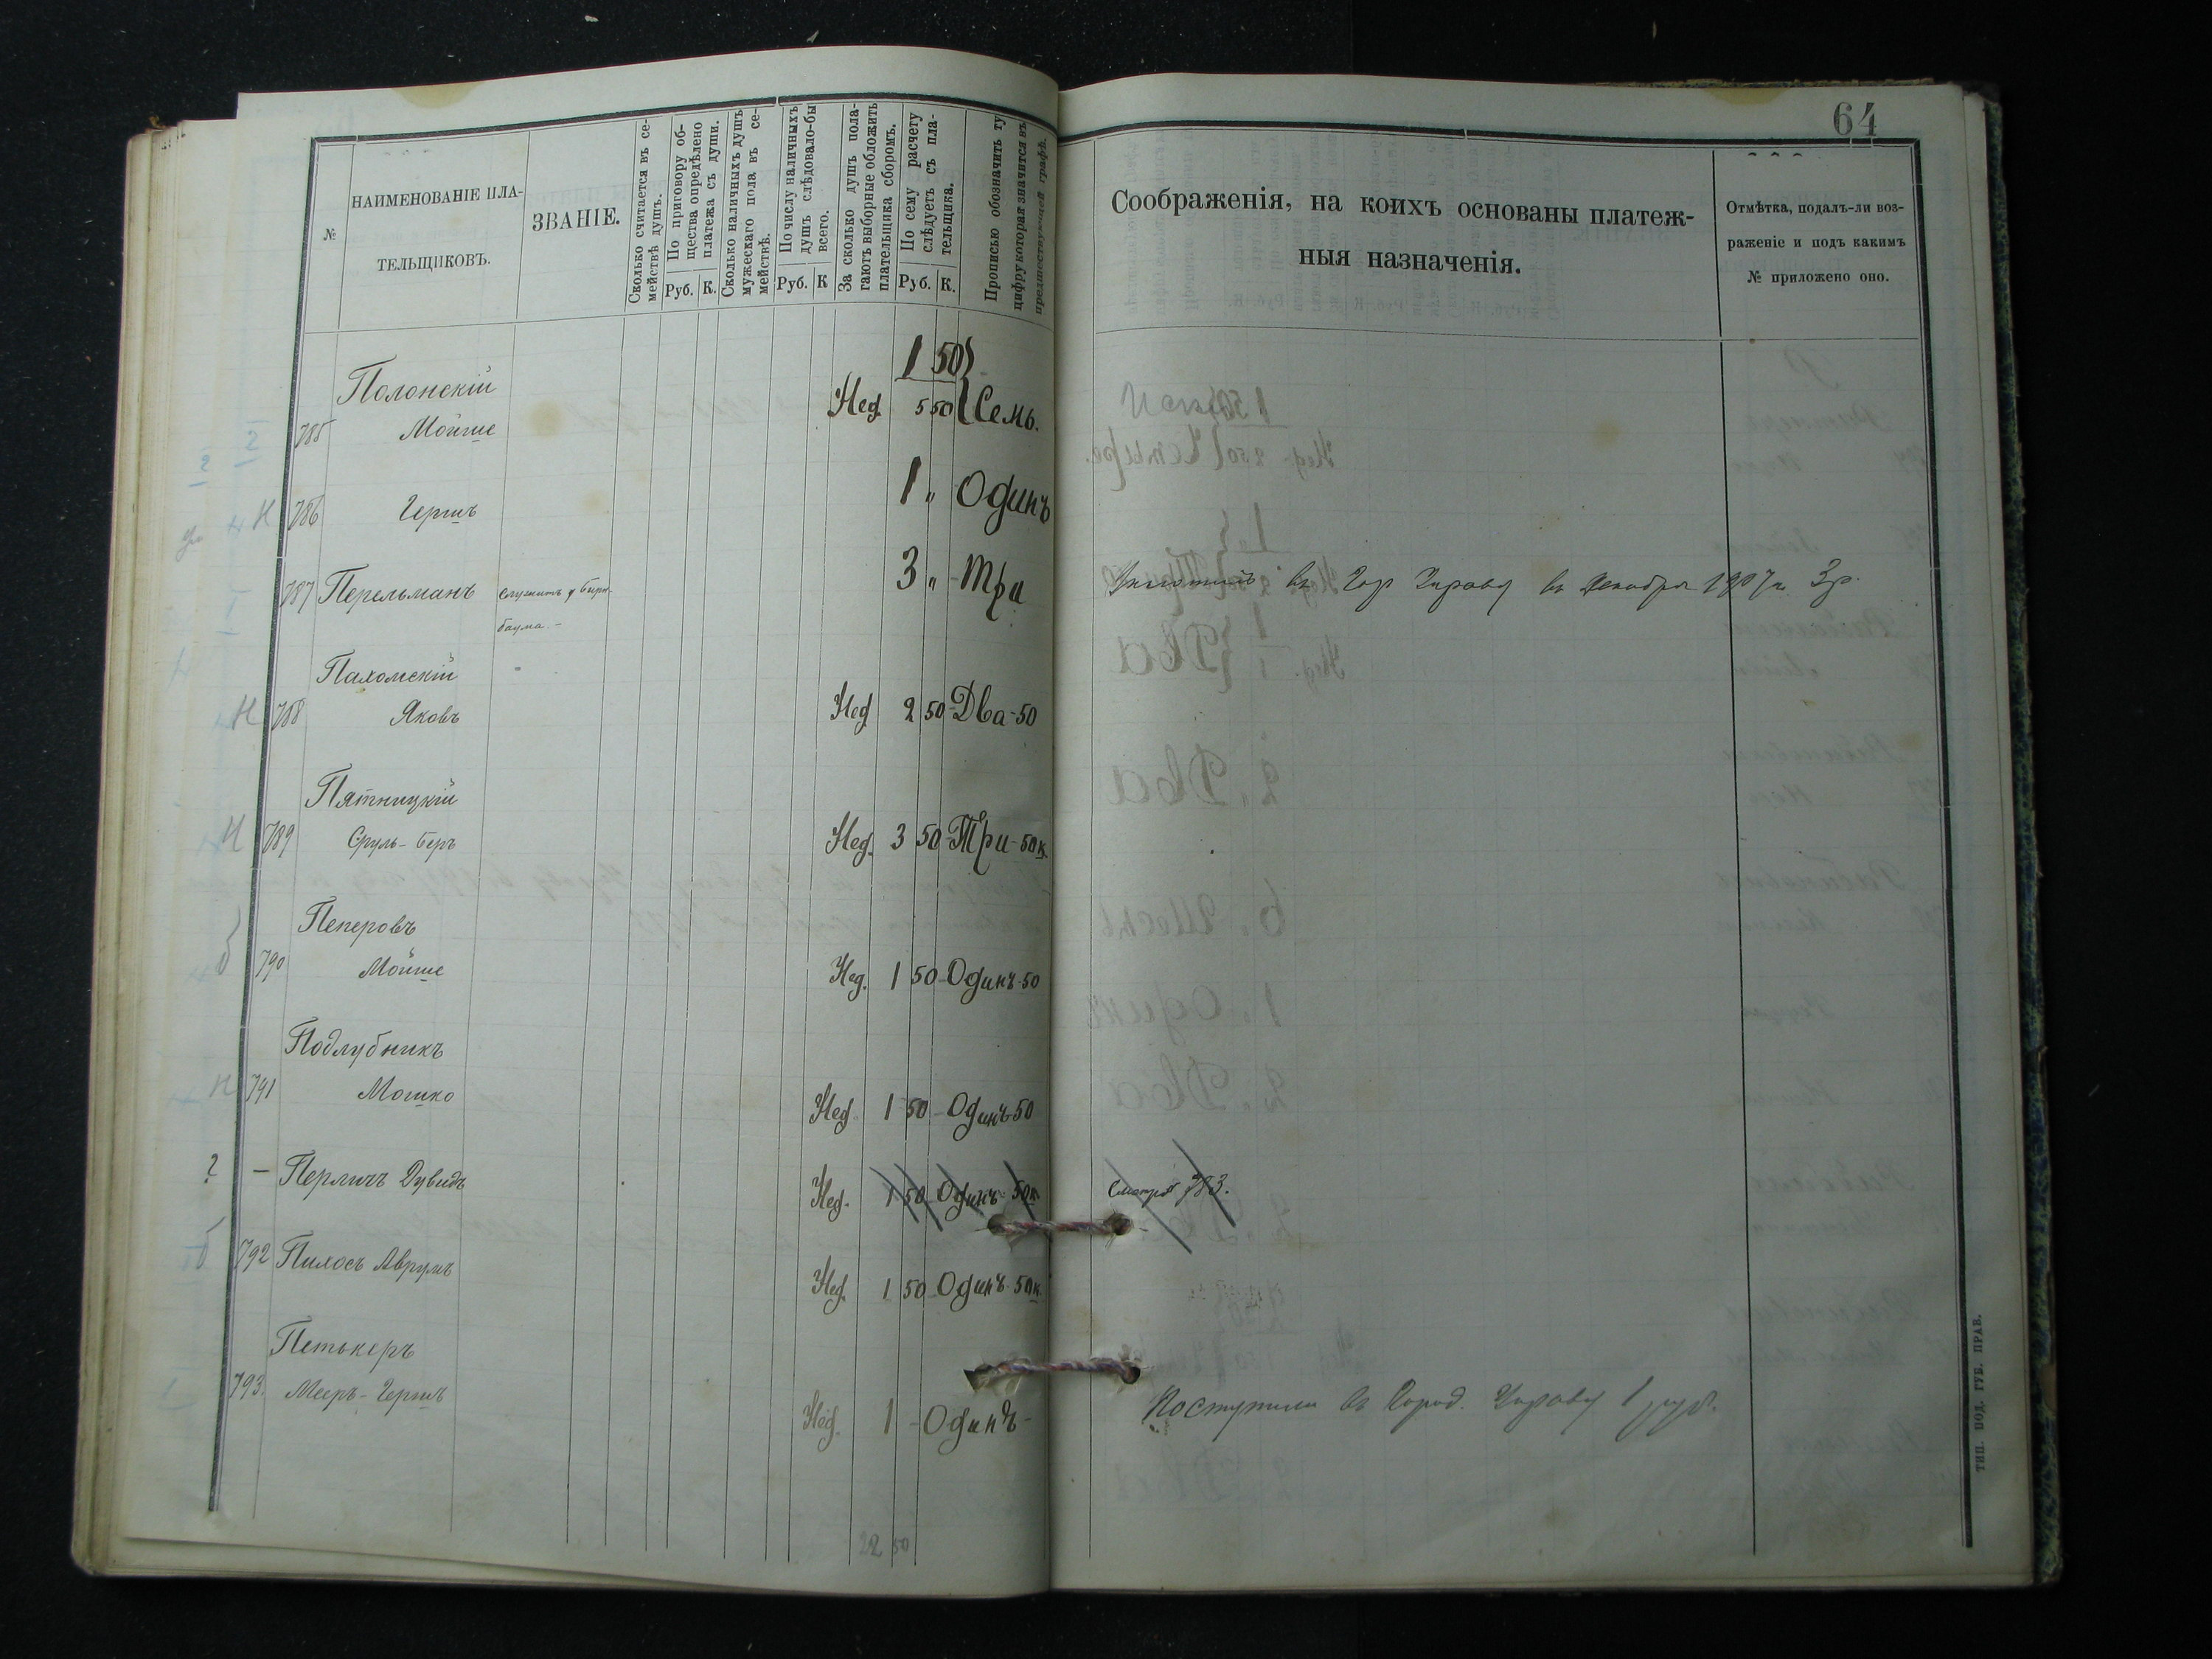 64
№
НАИМЕНОВАНІЕ ПЛА-
ТЕЛЬЩИКОВЪ.
ЗВАНІЕ.
Сколько считается въ се-
мействѣ душъ.
По приговору об-
щества опредѣлено
платежа съ души.
Руб. К.
Сколько наличныхъ душъ
мужескаго пола въ се-
мействѣ.
По числу наличныхъ
душъ слѣдовало-бы
всего.
Руб. К
За сколько душъ пола-
гаютъ выборные обложить
плательщика сборомъ.
По сему расчету
слѣдуетъ съ пла-
тельщика.
Руб. К.
Прописью обозначить ту
цифру которая значится въ
предшествующей графѣ.
Соображенія, на коихъ основаны платеж-
ныя назначенія.
Отмѣтка, подалъ-ли воз-
раженіе и подъ какимъ
№ приложено оно.
1 50
Полонскій
785 Мойше Нед. 5 50 Семь.
Н 786 Гершъ 1 „ Одинъ
787 Перельманъ служитъ у Бирн-
баума. 3 „ Три въ Гор Управу въ Декабрѣ 1907 г. 3 р.
Пахомскій
Н 788 Яковъ Нед 2 50 Два-50
Пятницкій
Н 789 Сруль-Беръ Нед. 3 50 Три-50 к.
Пекеровъ
б 790 Мойше Нед. 1 50 Одинъ-50
Подлубникъ
Н 791 Мошко Нед 1 50 Одинъ-50
? — Перличъ Дувидъ Нед. 1 50 Одинъ 50 к Смотри 783.
б 792 Пилосъ Аврумъ Нед. 1 50 Одинъ 50 к.
Петькеръ
793. Мееръ-Гершъ Нед. 1 - Одинъ - Поступили въ Город. Управу 1 руб.
22 50
ТИП. ПОД. ГУБ. ПРАВ.